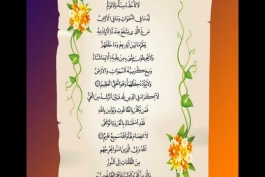 لَا تَأْخُذُهُ سِنَةٌ وَلَا نَوْمٌ
لَهُ مَا فِي السَّمَوَاتِ وَمَا فِي الْأَرْضِ
مَنْ ذَا الَّذِي يَشْفَعُ عِنْدَهُ إِلَّا بِإِذْنِهِ
يَعْلَمُ مَا بَيْنَ أَيْدِيهِمْ وَمَا خَلْفَهُمْ
وَلَا يُحِيطُونَ بِشَيْءٍ مِنْ عِلْمِهِ إِلَّا بِمَا شَاءَ
وَسِعَ كُرْسِيُّهُ السَّمَوَاتِ وَالْأَرْضَ
وَلَا يَؤُدُهُ حِفْظُهُمَا وَهُوَ الْعَلِيُّ الْعَظِيمُ
لَا إِكْرَاهَ فِي الدِّينِ قَدْ تَبَيَّنَ الرُّشْدُ مِنَ الْغَيِّ
فَمَنْ يَكْفُرْ بِالطَّاغُوتِ وَيُؤْمِنْ بِاللَّهِ
فَقَدِ اسْتَمْسَكَ بِالْعُرْوَةِ الْوُثْقَى
لَا انْفِصَامَ لَهَا وَاللَّهُ سَمِيعٌ عَلِيمٌ
اللَّهُ وَلِيُّ الَّذِينَ آمَنُوا يُخْرِجُهُمْ
مِنَ الظُّلُمَاتِ إِلَى النُّورِ